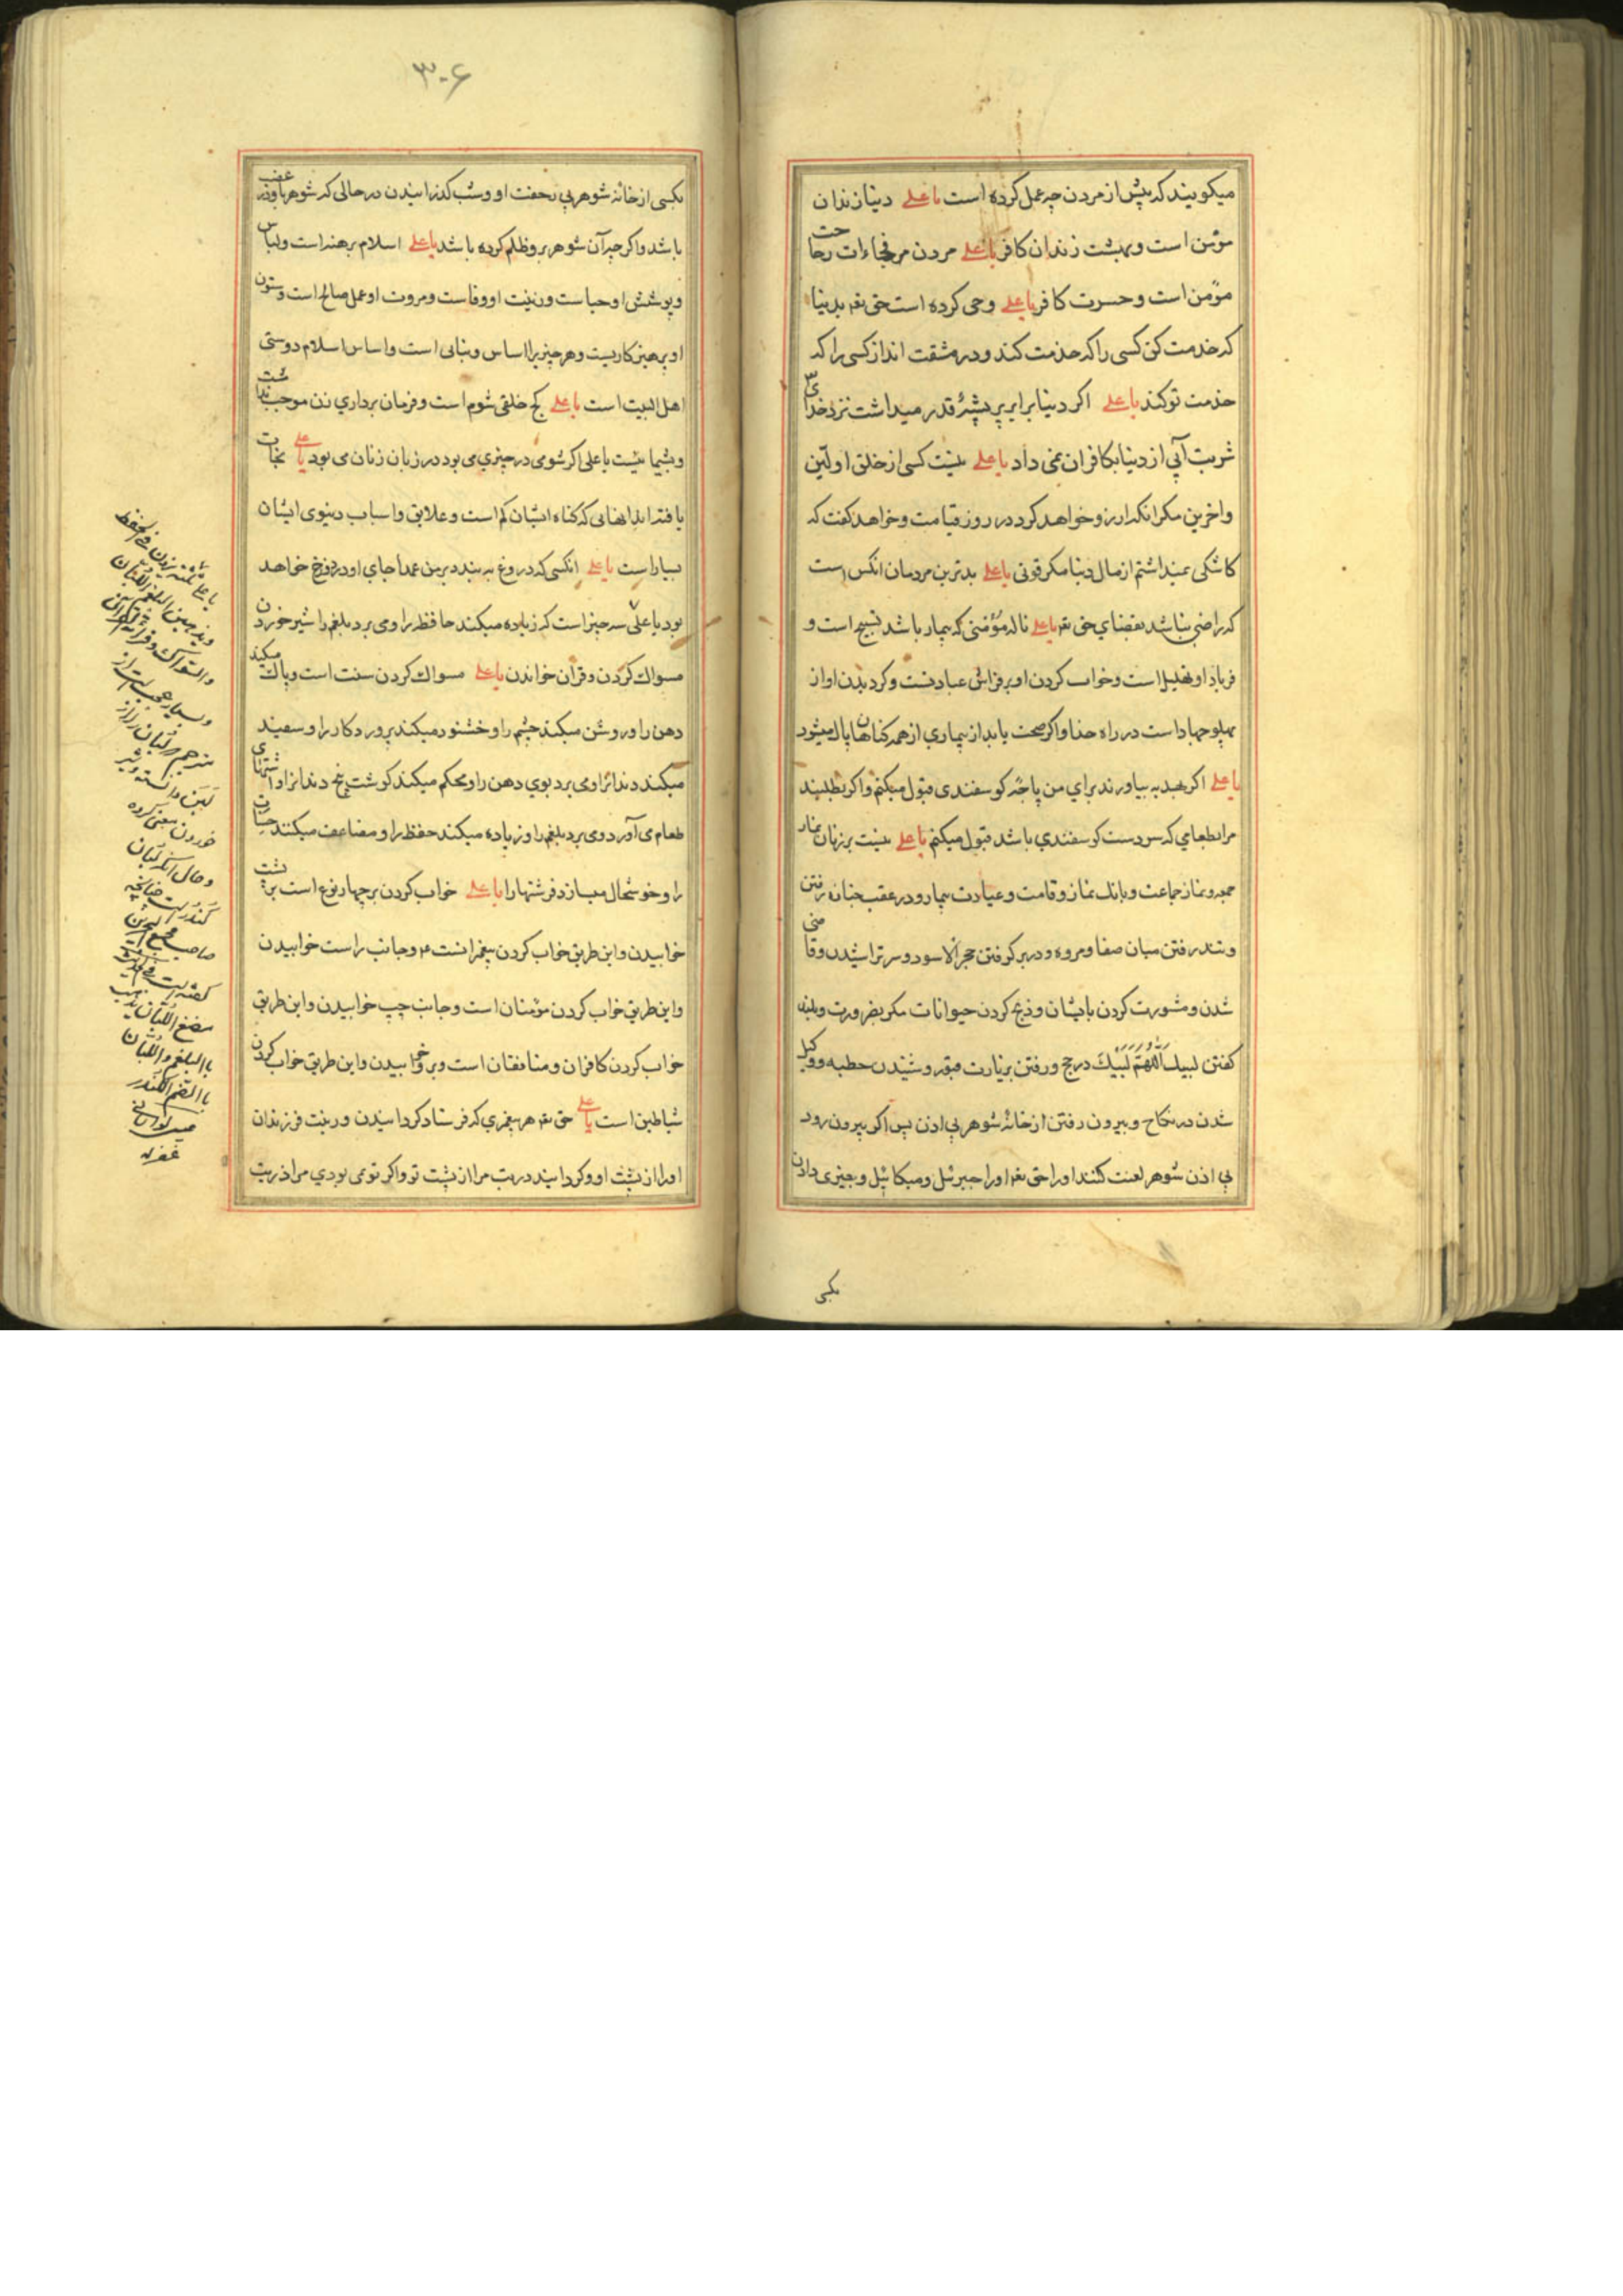 میکویند که پیش از مردن چه عمل کرده است یا علی دنیا زندان
مؤمن است و بهشت زندان کافر یا علی مردن مرفجاءات راحت
مؤمن است و حسرت کافر یا علی وحی کرده است حق تعه بدنیا
که خدمت کن کسی را که خدمت کند و در مشقت انداز کسی را که
خدمت تو کند یا علی اکر دنیا برابر پر پشهٔ قدر میداشت نزد خدای
شربت آبی از دنیا بکافران نمی داد یا علی نیست کسی از خلق اولین
و اخرین مکر انکه ارزو خواهد کرد در روز قیامت و خواهد کفت که
کاشکی نمیداشتم از مال دنیا مکر قوتی یا علی بدترین مردمان انکس است
که راضی نباشد بقضای حق تعه یا علی ناله مؤمنی که بیمار باشد تسبیح است و
فریاد او تهلیل است و خواب کردن او بر فراش عبادتست و کردیدن او از
پهلو جهاد است در راه خدا و اکر صحت یابد از بیماری از همه کناهان پاک میشود
یا علی اکر بهدیه بیاورند برای من پاچهٔ کوسفندی قبول میکنم و اکر بطلبند
مرا بطعامی که سر دست کوسفندی باشد قبول میکنم یا علی نیست بر زنان نماز
جمعه و نماز جماعت و بانک نماز و قامت و عیادت بیمار و در عقب جنازه رفتن
و تند رفتن میان صفا و مروه و در بر کرفتن حجر الاسود و سر تراشیدن و قاضی
شدن و مشورت کردن با دیشان و ذبح کردن حیوانات مکر بضرورت و بلند
کفتن لبیک اللهم لبیک در حج و رفتن بزیارت قبور و شنیدن خطبه و وکیل
شدن در نکاح و بیرون رفتن از خانهٔ شوهر بی اذن پس اکر بیرون رود
بی اذن شوهر لعنت کنند او را حق تعه او را جبرئیل و میکائیل و بچیزی دادن
بکسی
۳۰۶
بکسی از خانهٔ شوهر بی رخصت او و شب کذرانیدن در حالی که شوهر باو در غضب
باشد و اکر چه آن شوهر برو ظلم کرده باشد یا علی اسلام برهنه است و لباس
و پوشش او حیا ست و زینت او وفاست و مروت او عمل صالح است و ستون
او پرهیزکاریست و هر چیزیرا اساس و بنایی است و اساس اسلام دوستی
اهل البیت است یا علی کج خلقی شوم است و فرمان برداری زن موجب ندامت
و پشیمانیست یا علی اکر شومی در چیزی می بود در زبان زنان می بود یا علی نجات
یافتند انهایی که کناه ایشان کم است و علایق و اسباب دنیوی ایشان
بسیار است یا علی انکسی که دروغ به بندد بر من عمدا جای او در دوزخ خواهد
بود یا علی سه چیز است که زیاده میکند حافظه را و می برد بلغم را شیر خوردن
مسواک کردن و قران خواندن یا علی مسواک کردن سنت است و پاک میکند
دهن را و روشن میکند چشم را و خشنود میکند پروردکار را و سفید
میکند دندانرا و می برد بوی دهن را و محکم میکند کوشت بیخ دندانرا و اشتهای
طعام می آورد و می برد بلغم را و زیاده میکند حفظ را و مضاعف میکنند حسنات
را و خوشحال میسازد فرشتها را یا علی خواب کردن بر چهار نوع است بر پشت
خوابیدن و این طریق خواب کردن پیغمبرانست ۴ و جانب راست خوابیدن
و این طریق خواب کردن مؤمنان است و جانب چپ خوابیدن و این طریق
خواب کردن کافران و منافقان است و برو خوابیدن و این طریق خواب کردن
شیاطین است یا علی حق تعه هر پیغمبری که فرستاد کردانیدن و ریت فرزندان
او را از پشت او و کردانید ذریت مرا از پشت تو و اکر تو نمی بودی مرا ذریت
یا علی ثلثة یزدن فی الحفظ
و یذهبن البلغم اللبان
والسواک و قراءة القرآن
و بسیار عجب است از
مترجم که لبان را از
لبن دانسته و شیر
خوردن معنی کرده
و حال آنکه لبان
کندر است چنانچه
صاحب مجمع البحرین
کفته است فی الحدیث
مضغ اللبان یذهب
بالبلغم و اللبان
بالضم الکندر